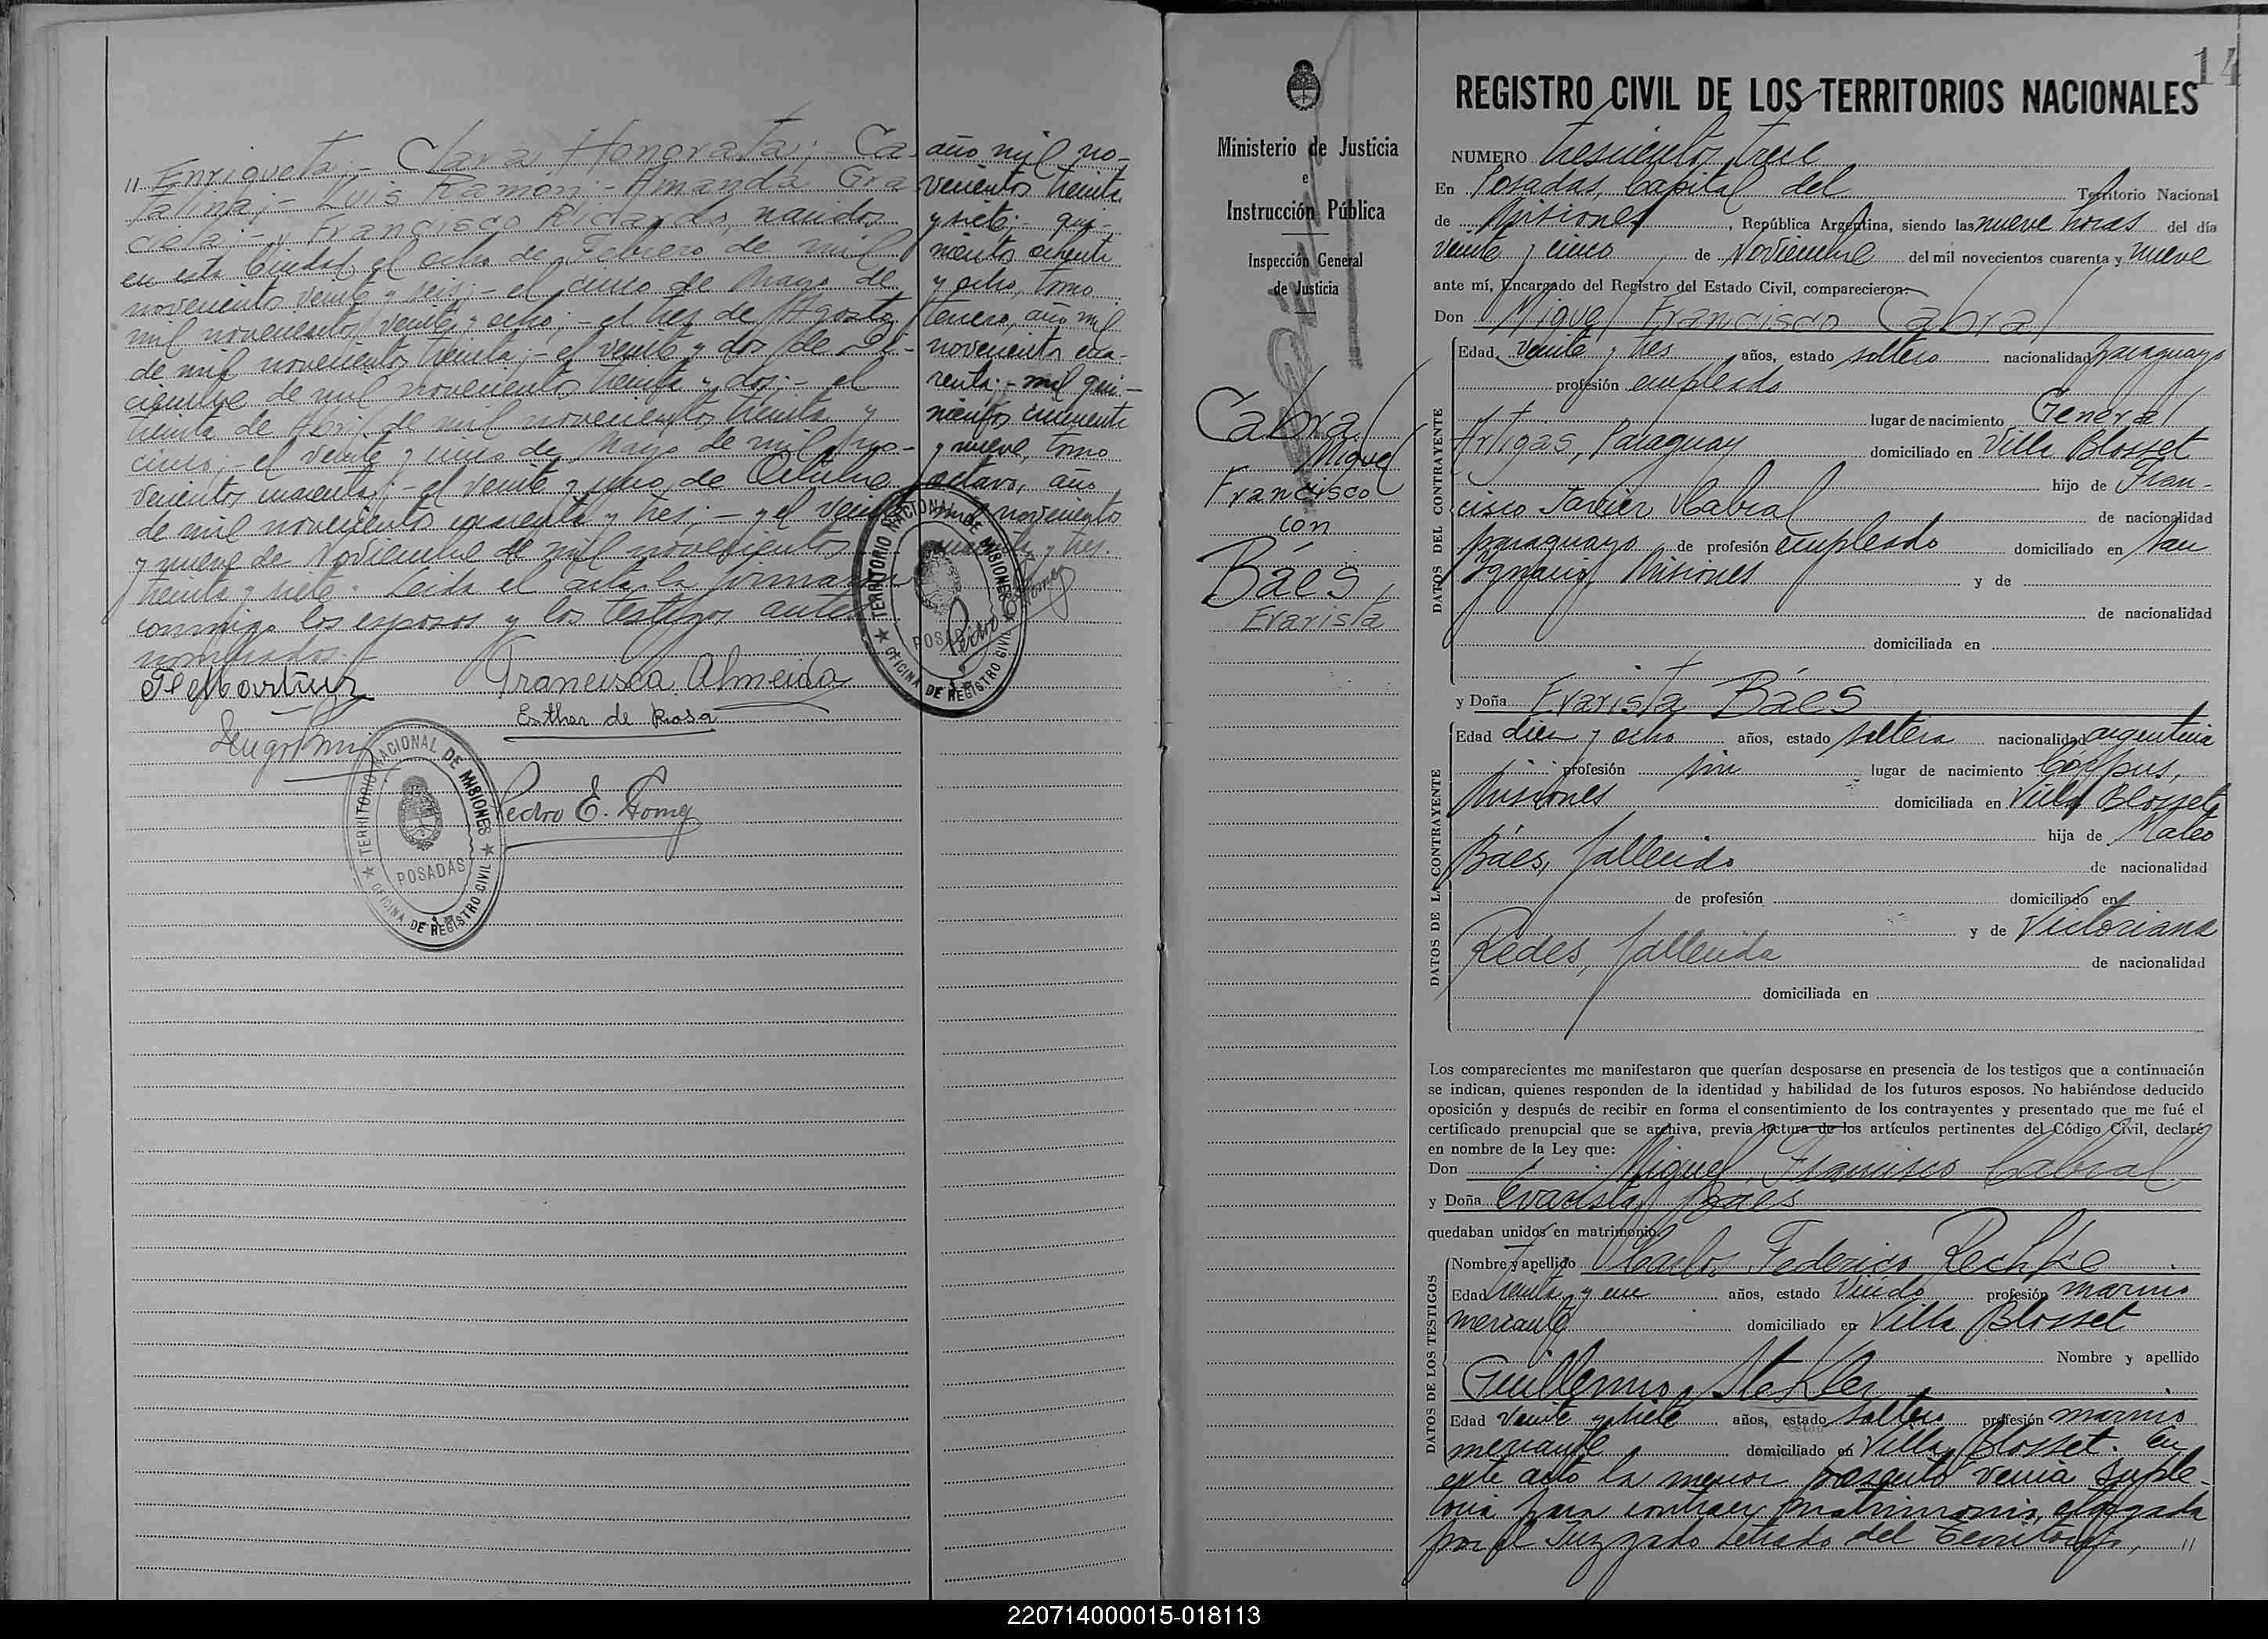 " Enriqueta; - Clara Honorata; - Ca-
talina; - Luis Ramón; - Amanda Gra-
ciela; - y Francisco Ricardo, nacidos
en esta Ciudad, el ocho de Febrero de mil
novecientos veinte y seis; - el cinco de Mayo de
mil novecientos veinte y ocho; - el tres de Agosto
de mil novecientos treinta; - el veinte y dos de Di-
ciembre de mil novecientos treinta y dos; - el
treinta de Abril de mil novecientos treinta y
cinco; - el veinte y cinco de Mayo de mil no-
vecientos cuarenta; - el veinte y ocho de Octubre
de mil novecientos cuarenta y tres; - y el veinte
y nueve de Noviembre de mil novecientos
treinta y siete. Leida el acta la firmaron
conmigo los esposos y los testigos antes
nombrados. -
Francisca Almeida
Esther de Rosa
Pedro E. Gomez
TERRITORIO NACIONAL DE MISIONES
POSADAS
OFICINA DE REGISTRO CIVIL
año mil no-
vecientos treinta
y siete; - qui-
nientos ochenta
y ocho, tomo
tercero, año mil
novecientos cua-
renta; - mil qui-
nientos cincuenta
y nueve, tomo
octavo, año
mil novecientos
cuarenta y tres.
Pedro E. Gomez
TERRITORIO NACIONAL DE MISIONES
POSADAS
OFICINA DE REGISTRO CIVIL
Ministerio de Justicia
e
Instrucción Pública
Inspección General
de Justicia
Cabral
Miguel
Francisco
con
Báes
Evarista
14
REGISTRO CIVIL DE LOS TERRITORIOS NACIONALES
NUMERO trescientos trece
En Posadas, Capital del Territorio Nacional
de Misiones, República Argentina, siendo las nueve horas del día
veinte y cinco de Noviembre del mil novecientos cuarenta y nueve
ante mí, Encargado del Registro del Estado Civil, comparecieron:
Don Miguel Francisco Cabral
DATOS DEL CONTRAYENTE
Edad veinte y tres años, estado soltero nacionalidad paraguayo
profesión empleado
lugar de nacimiento General
Artigas, Paraguay domiciliado en Villa Blosset
hijo de Fran-
cisco Javier Cabral de nacionalidad
paraguayo de profesión empleado domiciliado en San
Ignacio, Misiones y de
de nacionalidad
domiciliada en
y Doña Evarista Báes
DATOS DE LA CONTRAYENTE
Edad diez y ocho años, estado soltera nacionalidad argentina
profesión sin lugar de nacimiento Corpus,
Misiones domiciliada en Villa Blosset
hija de Mateo
Báes, fallecido de nacionalidad
de profesión domiciliado en
y de Victoriana
Redes, fallecida de nacionalidad
domiciliada en
Los comparecientes me manifestaron que querían desposarse en presencia de los testigos que a continuación
se indican, quienes responden de la identidad y habilidad de los futuros esposos. No habiéndose deducido
oposición y después de recibir en forma el consentimiento de los contrayentes y presentado que me fué el
certificado prenupcial que se archiva, previa lectura de los artículos pertinentes del Código Civil, declaré
en nombre de la Ley que:
Don Miguel Francisco Cabral
y Doña Evarista Baes
quedaban unidos en matrimonio.
DATOS DE LOS TESTIGOS
Nombre y apellido Carlos Federico Rechke
Edad treinta y un años, estado Viudo profesión marino
mercante domiciliado en Villa Blosset
Nombre y apellido
Guillermo Stekler
Edad veinte y siete años, estado soltero profesión marino
mercante domiciliado en Villa Blosset. En
este acto la menor presentó venia suple-
toria para contraer matrimonio, otorgada
por el Juzgado Letrado del Territorio, "
220714000015-018113